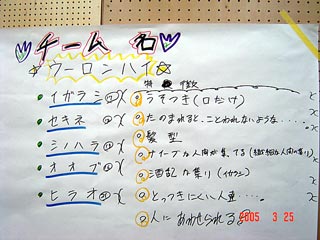 チーム名
ウーロンハイ
特徴
イガラシ
うそつき(口だけ)
セキネ
たのまれると、ことわれないような……。
シノハラ
髪型
オオブ
ナイーブな人間が集ってる
酒記な集り
ヒラオ
とっつきにくい人達…。
人にあわせられる。
2005 3 25